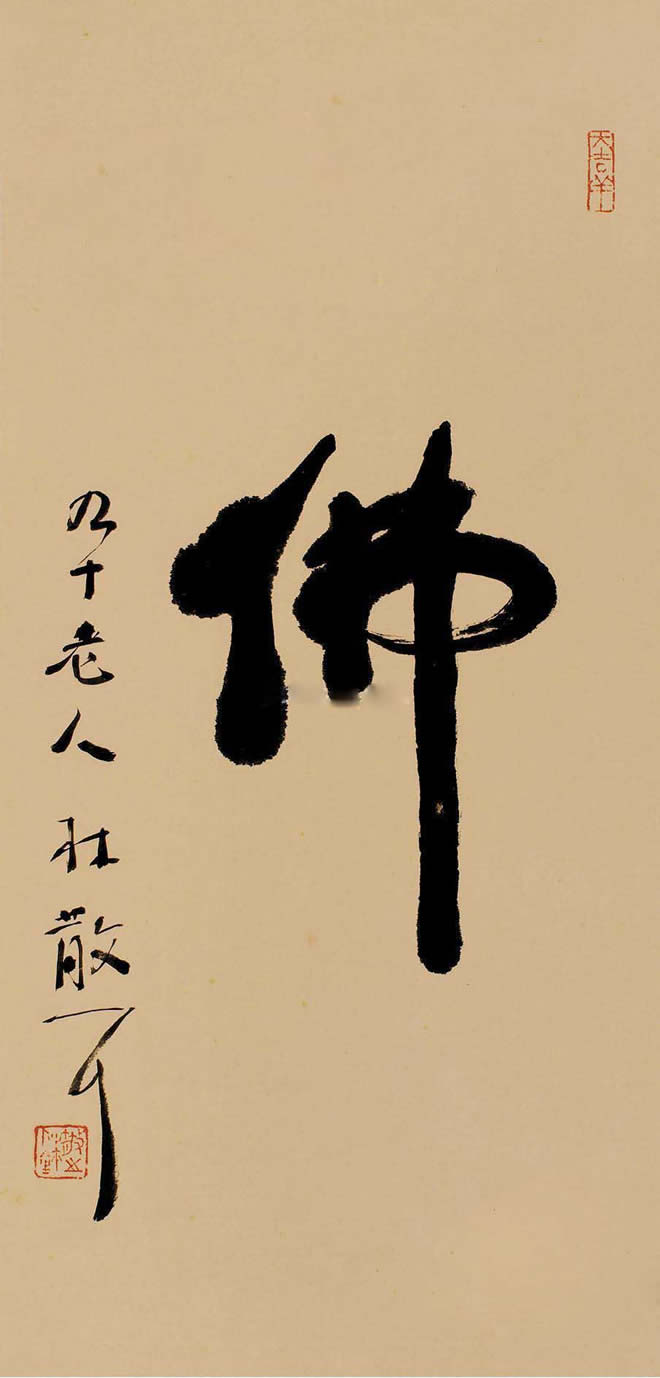 佛
九十老人林散耳